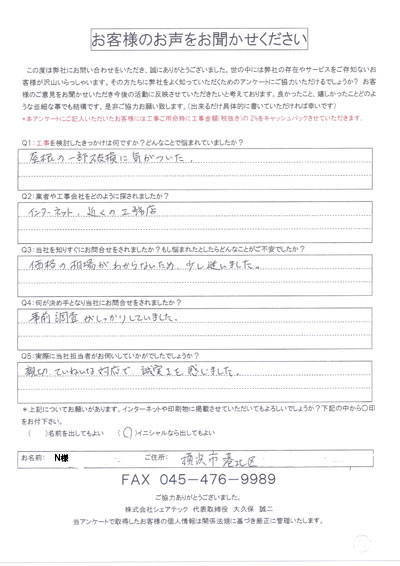 お客様のお声をお聞かせください
この度は弊社にお問い合わせをいただき、誠にありがとうございました。世の中には弊社の存在やサービスをご存知ないお
客様が沢山いらっしゃいます。その方たちに弊社をよく知っていただくためのアンケートにご協力いただけるでしょうか？ お客
様のご意見をお聞かせいただき今後の活動に反映させていただきたいと考えております。良かったこと、嬉しかったことどのよ
うな些細な事でも結構です。是非ご協力お願い致します。（出来るだけ具体的に書いていただければ幸いです）
*本アンケートにご記入いただいたお客様には工事ご用命時に工事金額（税抜き）の 2%をキャッシュバックさせていただきます。
Q1：工事を検討したきっかけは何ですか？どんなことで悩まれていましたか？
屋根の一部破損に気がついた。
Q2：業者や工事会社をどのように探されましたか？
インターネット、近くの工務店
Q3：当社を知りすぐにお問合せをされましたか？もし悩まれたとしたらどんなことがご不安でしたか？
価格の相場がわからないため、少し迷いました。
Q4：何が決め手となり当社にお問合せをされましたか？
事前調査がしっかりしていました。
Q5：実際に当社担当者がお伺いしていかがでしたでしょうか？
親切、ていねいな対応で、誠実さを感じました。
＊上記についてお願いがあります。インターネットや印刷物に掲載させていただいてもよろしいでしょうか？下記の中から〇印
をお付下さい。
（ ）名前を出してもよい （〇）イニシャルなら出してもよい
お名前： N様 ご住所： 横浜市港北区
FAX 045-476-9989
ご協力ありがとうございました。
株式会社シェアテック 代表取締役 大久保 誠二
当アンケートで取得したお客様の個人情報は関係法規に基づき厳正に管理いたします。